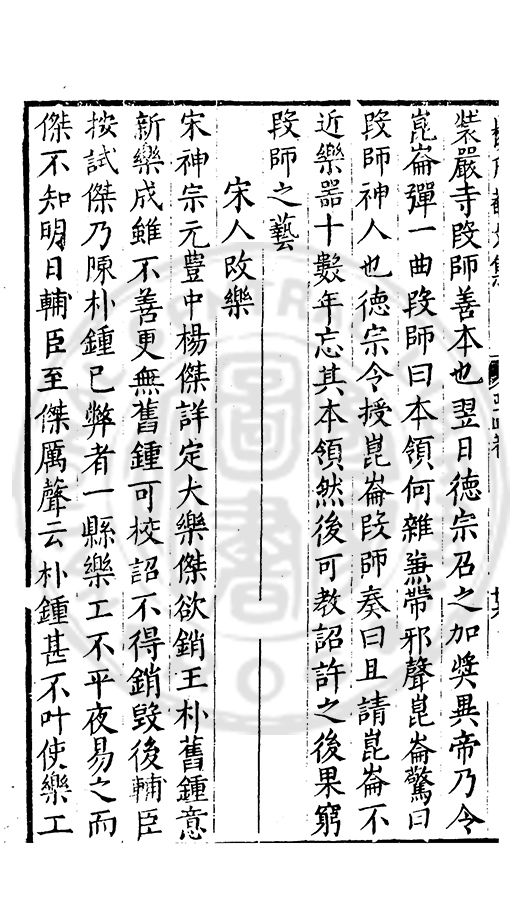 裝嚴寺段師善本也翌日德宗召之加奬異帝乃令
崑崙彈一曲段師曰本領何雜兼帶邪聲崑崙驚曰
段師神人也德宗令授崑崙段師奏曰且請崑崙不
近樂器十數年忘其本領然後可教詔許之後果窮
段師之藝
宋人改樂
宋神宗元豊中楊傑詳定大樂傑欲銷王朴舊鍾意
新樂成雖不善更無舊鍾可校詔不得銷毀後輔臣
按試傑乃陳朴鍾已弊者一縣樂工不平夜易之而
傑不知明日輔臣至傑厲聲云朴鍾甚不叶使樂工